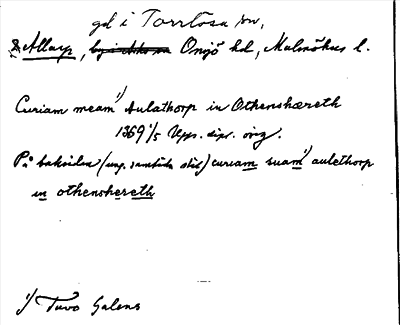 gd i Torrlösa sn,
Allarp, Onsjö hd, Malmöhus l.
Curiam meam 1) Aulathorp in Othenshæreth
1369 1/5 Upps. dipl. orig.
På baksidan (ung. samtida stil) curiam suam 1) aulethorp
in othenshereth
1) Tuvo Galens